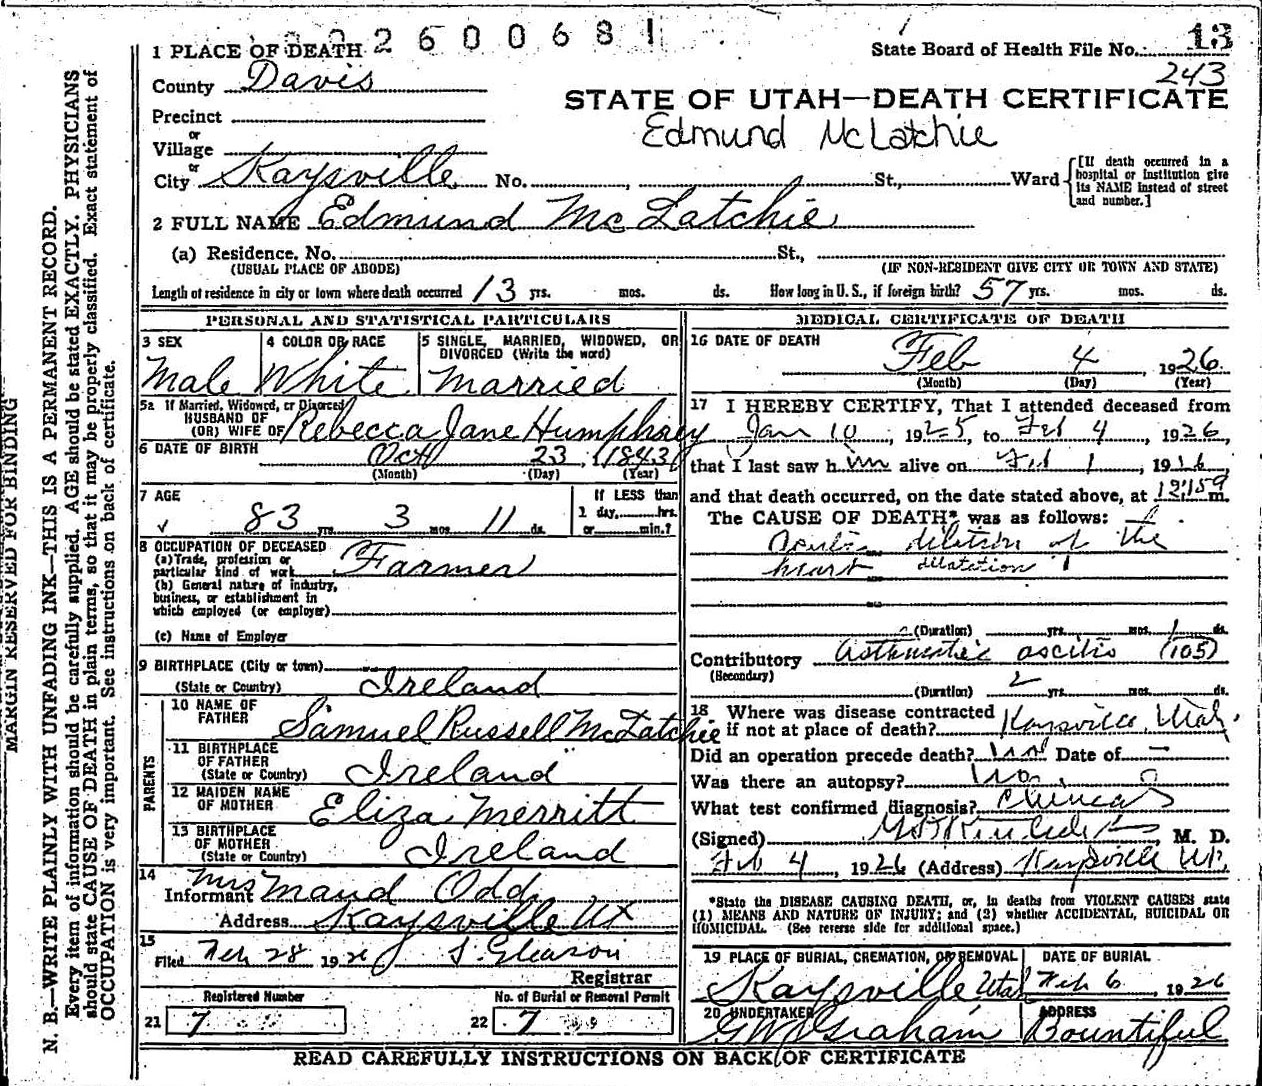 2600681
1 PLACE OF DEATH
State Board of Health File No. 13
243
County Davis
STATE OF UTAH—DEATH CERTIFICATE
Edmund McLatchie
Precinct
or
Village
or
City Kaysville No. , St., Ward
[If death occurred in a hospital or institution give its NAME instead of street and number.]
2 FULL NAME Edmund McLatchie
(a) Residence. No. St.,
(USUAL PLACE OF ABODE) (IF NON-RESIDENT GIVE CITY OR TOWN AND STATE)
Length of residence in city or town where death occurred 13 yrs. mos. ds. How long in U. S., if foreign birth? 57 yrs. mos. ds.
PERSONAL AND STATISTICAL PARTICULARS
3 SEX
Male
4 COLOR OR RACE
White
5 SINGLE, MARRIED, WIDOWED, OR
DIVORCED (Write the word)
Married
5a If Married, Widowed, or Divorced
HUSBAND OF
(OR) WIFE OF Rebecca Jane Humphrey
6 DATE OF BIRTH Oct 23, 1843
(Month) (Day) (Year)
7 AGE
83 yrs. 3 mos. 11 ds.
If LESS than
1 day, hrs.
or min.?
8 OCCUPATION OF DECEASED
(a) Trade, profession or
particular kind of work Farmer
(b) General nature of industry,
business, or establishment in
which employed (or employer)
(c) Name of Employer
9 BIRTHPLACE (City or town)
(State or Country) Ireland
PARENTS
10 NAME OF
FATHER Samuel Russell McLatchie
11 BIRTHPLACE
OF FATHER
(State or Country) Ireland
12 MAIDEN NAME
OF MOTHER Eliza Merritt
13 BIRTHPLACE
OF MOTHER
(State or Country) Ireland
14
Informant Mrs Maud Odd
Address Kaysville Ut
15
Filed Feb 28 1926 S. Gleason
Registrar
Registered Number
21 7
No. of Burial or Removal Permit
22 7
MEDICAL CERTIFICATE OF DEATH
16 DATE OF DEATH
Feb 4 1926
(Month) (Day) (Year)
17 I HEREBY CERTIFY, That I attended deceased from
Jan 10, 1925, to Feb 4, 1926,
that I last saw him alive on Feb 1, 1926,
and that death occurred, on the date stated above, at m.
The CAUSE OF DEATH* was as follows:
dilation of the
heart dilatation
(Duration) yrs. mos. 1 ds.
Contributory ascitis (105)
(Secondary)
(Duration) 2 yrs. mos. ds.
18 Where was disease contracted
if not at place of death? Kaysville, Utah.
Did an operation precede death? Date of —
Was there an autopsy? No.
What test confirmed diagnosis? Clinical
(Signed) M. D.
Feb 4, 1926 (Address) Kaysville Ut.
*State the DISEASE CAUSING DEATH, or, in deaths from VIOLENT CAUSES state
(1) MEANS AND NATURE OF INJURY; and (2) whether ACCIDENTAL, SUICIDAL OR
HOMICIDAL. (See reverse side for additional space.)
19 PLACE OF BURIAL, CREMATION, OR REMOVAL
Kaysville Utah
DATE OF BURIAL
Feb 6, 1926
20 UNDERTAKER
Graham
ADDRESS
Bountiful
READ CAREFULLY INSTRUCTIONS ON BACK OF CERTIFICATE
MARGIN RESERVED FOR BINDING
N. B.—WRITE PLAINLY WITH UNFADING INK—THIS IS A PERMANENT RECORD.
Every item of information should be carefully supplied. AGE should be stated EXACTLY. PHYSICIANS
should state CAUSE OF DEATH in plain terms, so that it may be properly classified. Exact statement of
OCCUPATION is very important. See instructions on back of certificate.